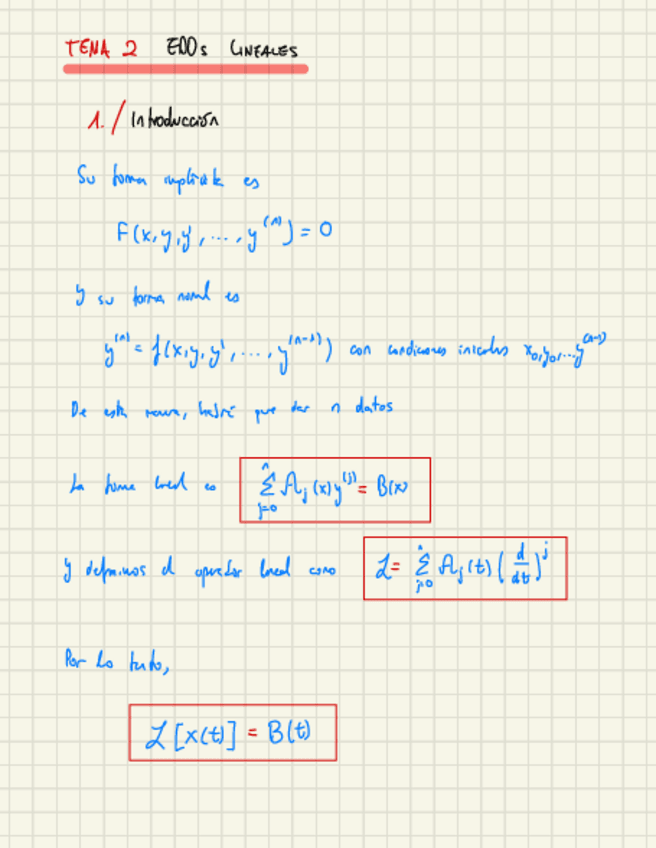 TEMA 2 EDOs LINEALES
1./ Introducción
Su forma implícita es
F(x,y,y',...,y^(n)) = 0
y su forma normal es
y^(n) = f(x,y,y',...,y^(n-1)) con condiciones iniciales x₀,y₀,...y^(n-1)
De esta manera, habrá que dar n datos
La forma lineal es ∑_{j=0}^{n} A_j(x)y^(j) = B(x)
y definimos el operador lineal como L = ∑_{j=0}^{n} A_j(t)(d/dt)^j
Por lo tanto,
L[x(t)] = B(t)